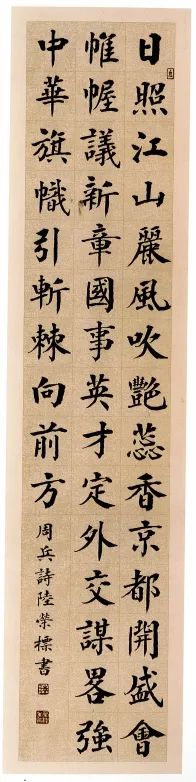 日照江山麗風吹艷蕊香京都開盛會
帷幄議新章國事英才定外交謀畧強
中華旗幟引斬棘向前方
周兵詩陸榮標書